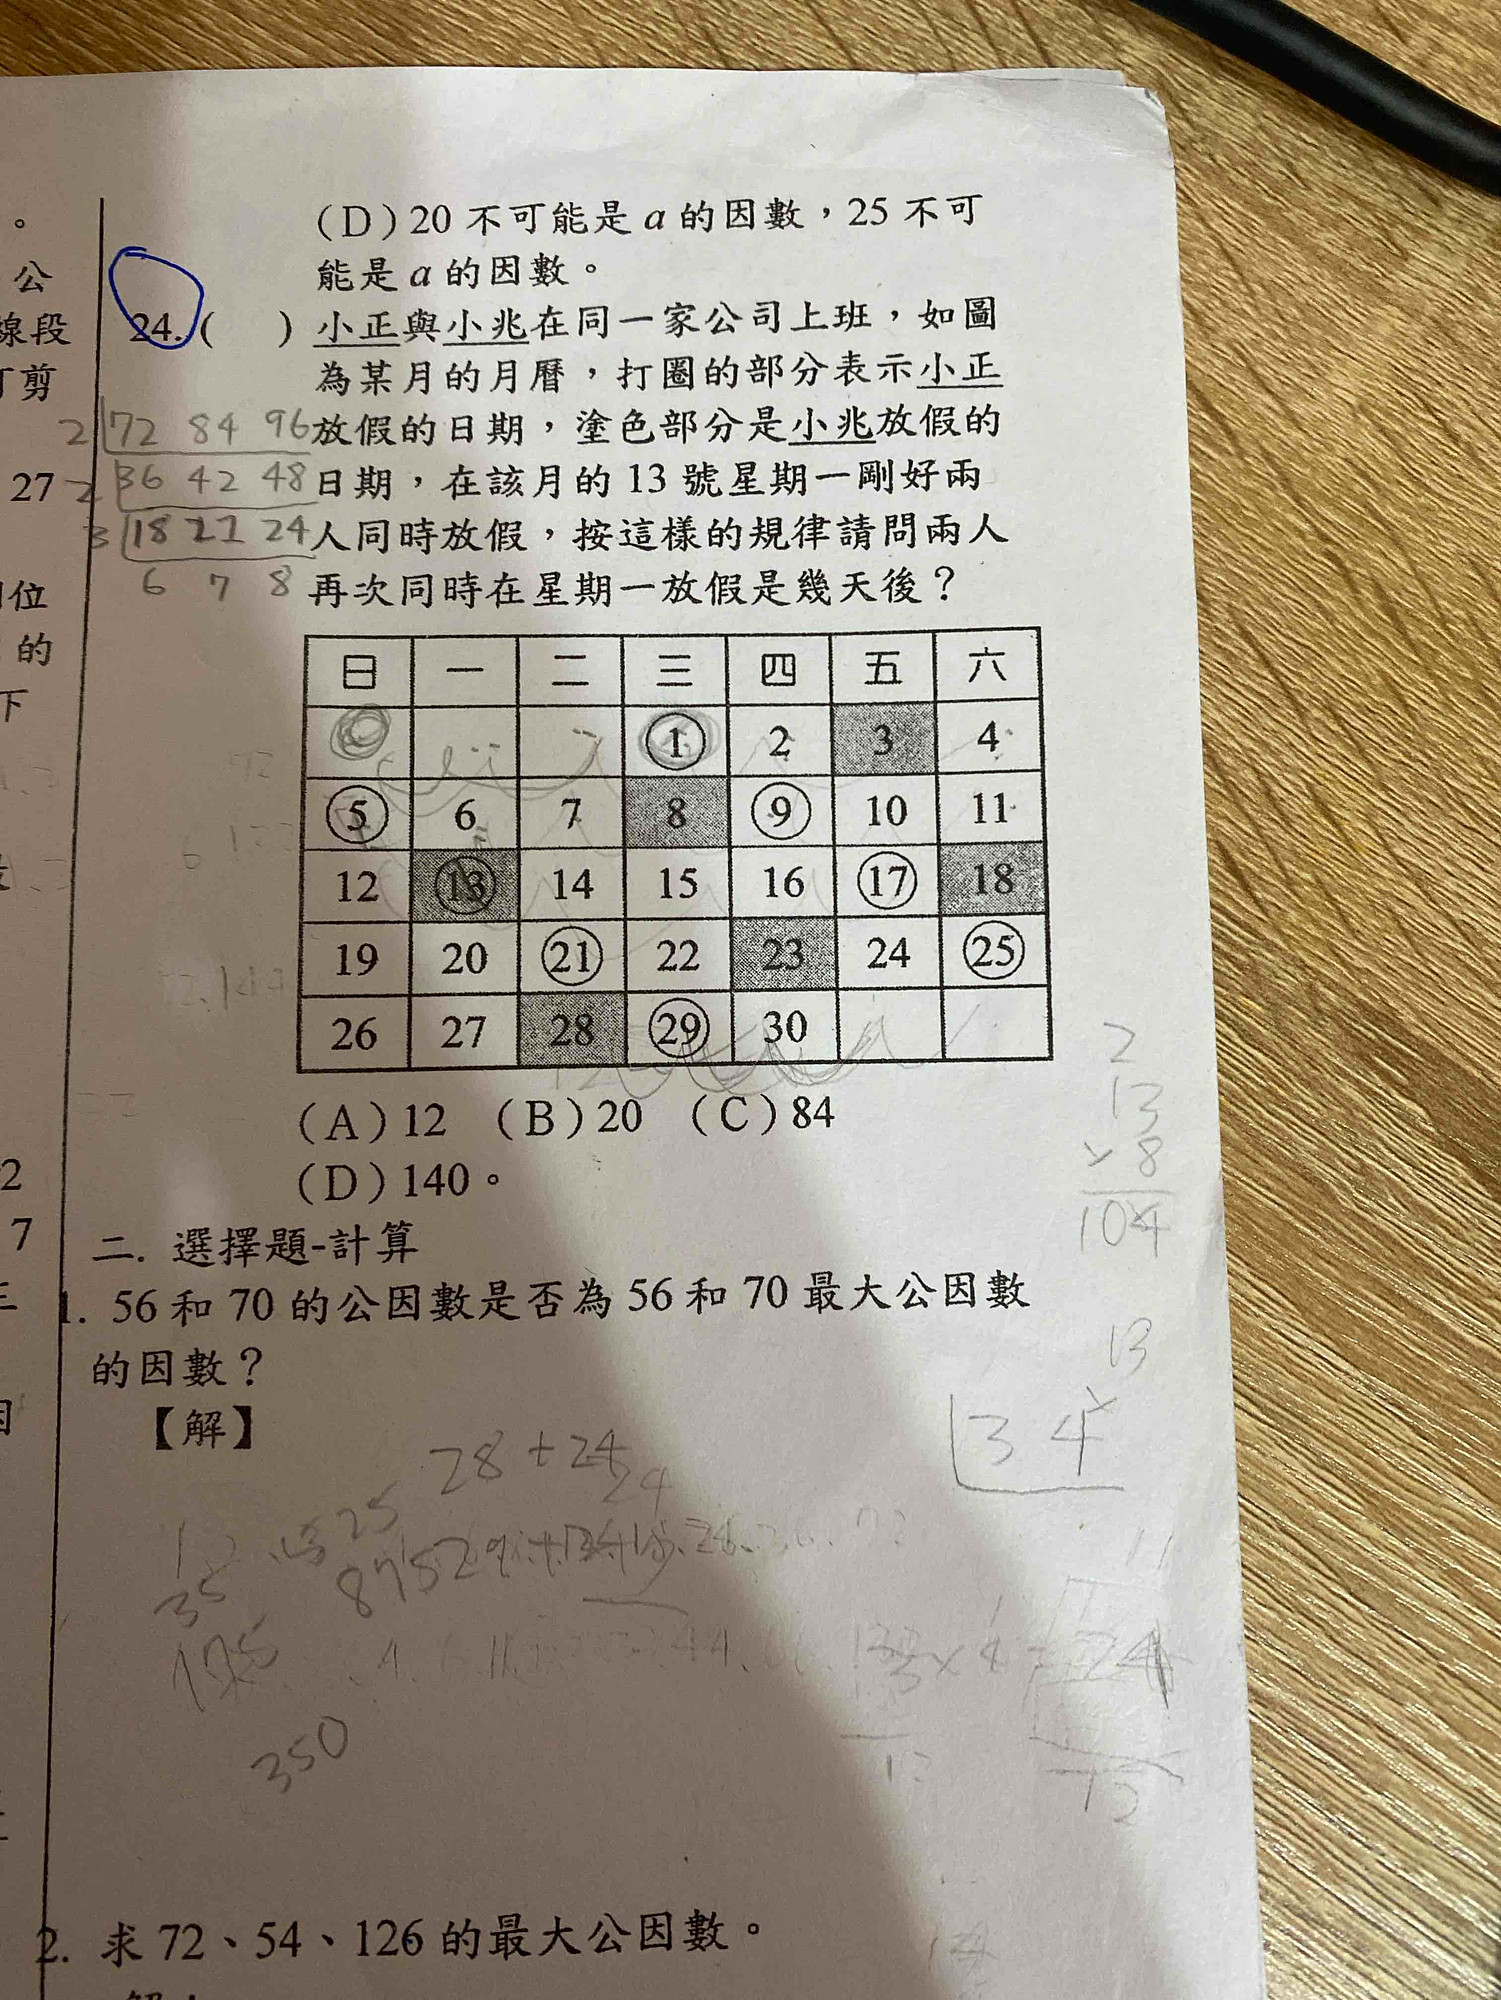 。
公
線段
剪
27
位
的
下
2
7
(D) 20 不可能是 a 的因數，25 不可
能是 a 的因數。
24. (　) 小正與小兆在同一家公司上班，如圖
為某月的月曆，打圈的部分表示小正
放假的日期，塗色部分是小兆放假的
日期，在該月的 13 號星期一剛好兩
人同時放假，按這樣的規律請問兩人
再次同時在星期一放假是幾天後？
2 72 84 96
2 36 42 48
3 18 21 24
6 7 8
日 一 二 三 四 五 六
1 2 3 4
5 6 7 8 9 10 11
12 13 14 15 16 17 18
19 20 21 22 23 24 25
26 27 28 29 30
(A) 12 (B) 20 (C) 84
(D) 140。
2
13
×8
104
二. 選擇題-計算
1. 56 和 70 的公因數是否為 56 和 70 最大公因數
的因數？
【解】
13
34
28+24
24
25
35
175
350
2. 求 72、54、126 的最大公因數。